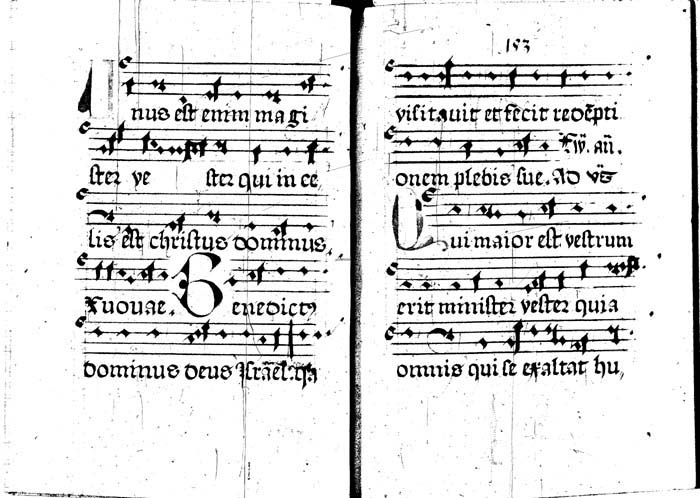 Unus est enim magi
ster ve ster qui in ce
lis est christus dominus.
Xuouae. Benedictꝰ
dominus deus Isrãel. q̃a
193
visitauit et fecit redẽpti
onem plebis sue. Ad
Qui maior est vestrum
erit minister vester quia
omnis qui se exaltat hu,